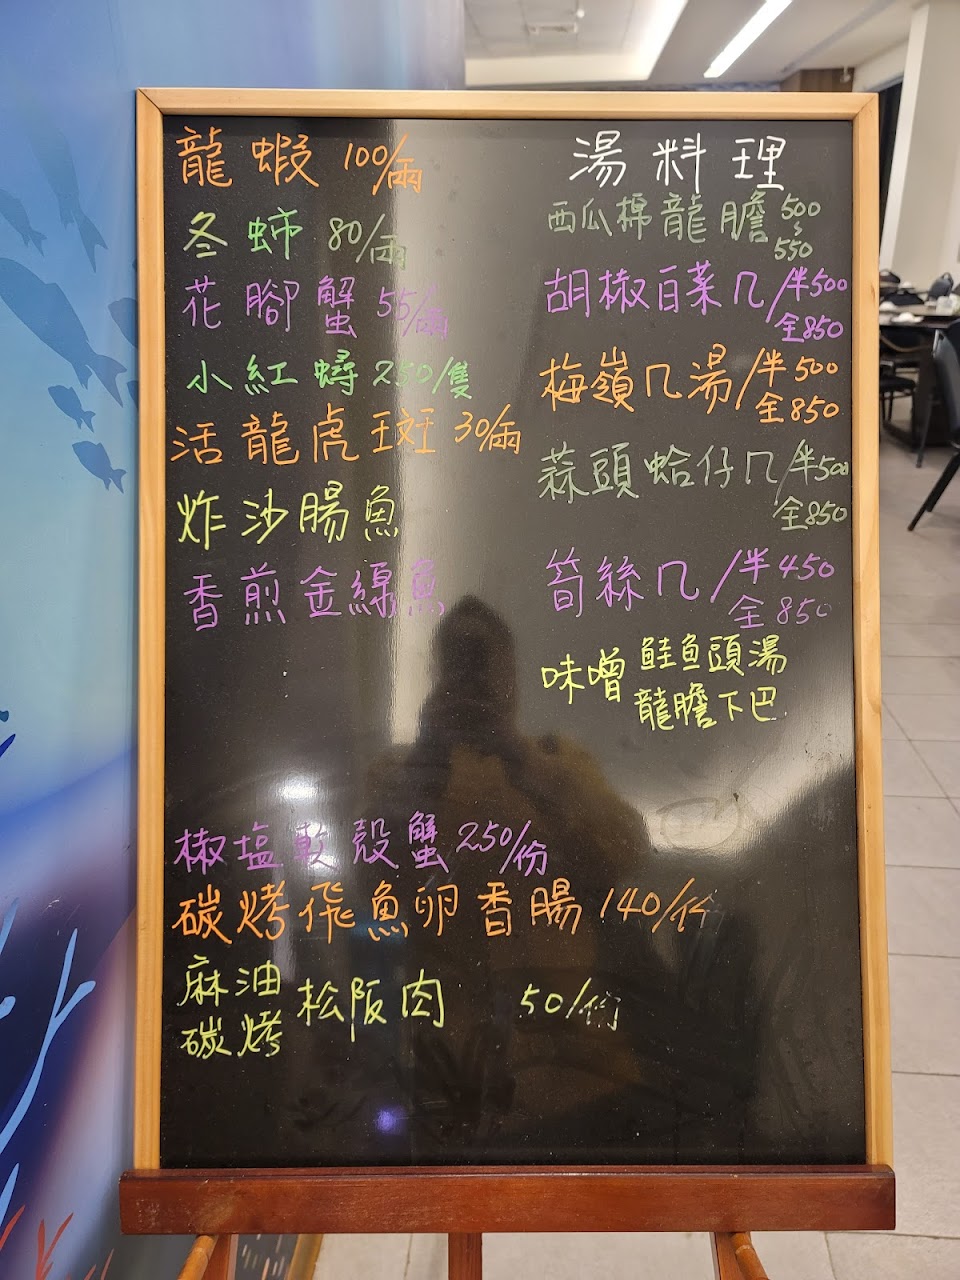 龍蝦 100/兩
冬蚵 80/兩
花腳蟹 55/兩
小紅蟳 250/隻
活龍虎斑 30/兩
炸沙腸魚
香煎金線魚
椒塩軟殼蟹 250/份
碳烤飛魚卵香腸 140/份
麻油
碳烤
松阪肉 50/份
湯料理
西瓜棉龍膽 500~550
胡椒百菜几/半500
全850
梅嶺几湯/半500
全850
蒜頭蛤仔几/半500
全850
筍絲几/半450
全850
味噌
鮭魚頭湯
龍膽下巴